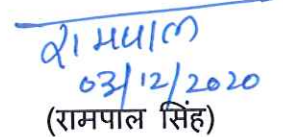 रामपाल
03/12/2020
(रामपाल सिंह)